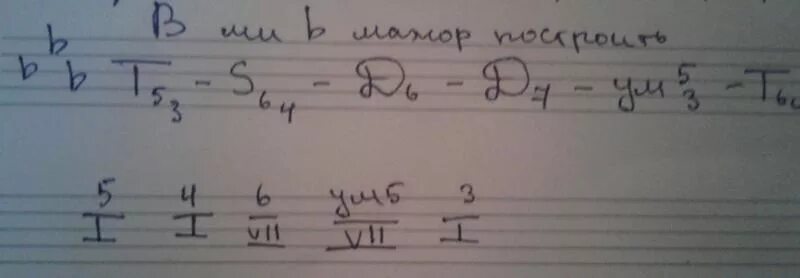 В ми b мажор построить
b b b T53 - S64 - D6 - D7 - ум53 - T6
5 4 6 ум5 3
I I VII VII I